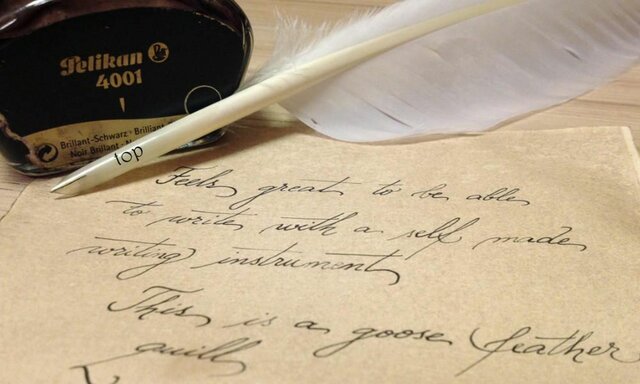 Pelikan
4001
Brillant-Schwarz · Brillian
Noir Brillant · N
top
Feels great to be able
to write with a self made
writing instrument
This is a goose feather
quill